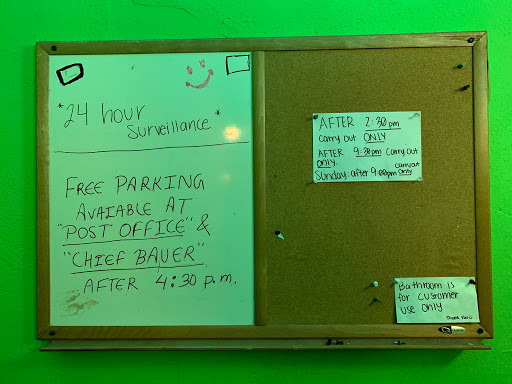 *24 hour
Surveillance*
FREE PARKING
AVAIABLE AT
"POST OFFICE" &
"CHIEF BAUER"
AFTER 4:30 p.m.
AFTER 2:30 pm
carry out ONLY
AFTER 9:30pm carry out
ONLY.
Sunday: after 9:00pm carry out only
Bathroom is
for customer
use only
Thank You